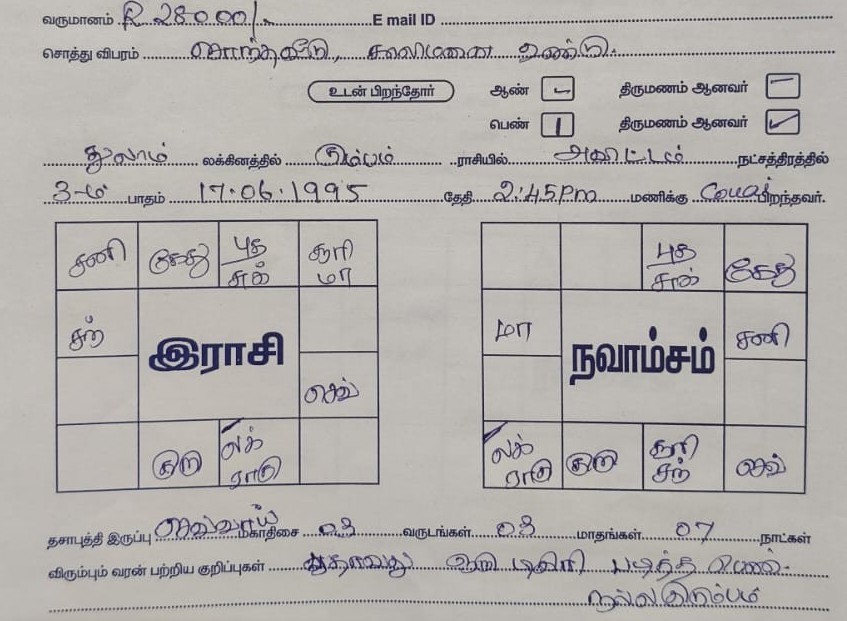 வருமானம் R 28000/- E mail ID
சொத்து விபரம் சொந்தவீடு, காலிமனை உண்டு.
உடன் பிறந்தோர் ஆண் - திருமணம் ஆனவர் -
பெண் 1 திருமணம் ஆனவர் ✓
துலாம் லக்கினத்தில் கும்பம் ராசியில் அவிட்டம் நட்சத்திரத்தில்
3-ம் பாதம் 17.06.1995 தேதி 2:45Pm மணிக்கு பிறந்தவர்.
சனி கேது புத சுக் சூரி மா
சந் செவ்
இராசி
குரு லக் ராகு
புத சுக் கேது
மா சனி
நவாம்சம்
லக் ராகு குரு சூரி சந் செவ்
தசாபுத்தி இருப்பு செவ்வாய் மகாதிசை 03 வருடங்கள் 03 மாதங்கள் 07 நாட்கள்
விரும்பும் வரன் பற்றிய குறிப்புகள் ஏதாவது ஒரு டிகிரி படித்த பெண்.
நல்ல குடும்பம்